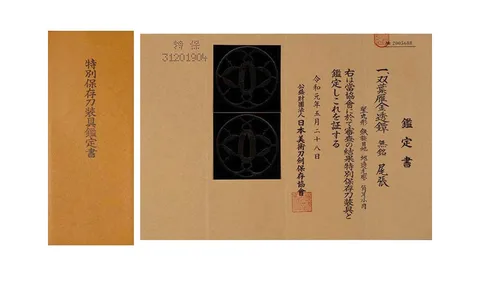 特別保存刀装具鑑定書
特保
31201904
鑑定書
一、双葉雁金透鐔 無銘 尾張
右は當協會に於て審査の結果特別保存刀装具と
鑑定しこれを証する
令和元年五月二十八日
公益財団法人 日本美術刀剣保存協會